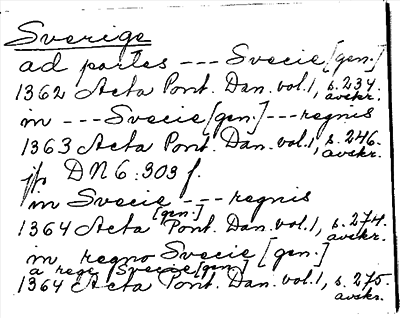 Sverige
ad partes --- Svecie [gen.]
1362 Acta Pont. Dan. vol.1, s.234. avskr.
in --- Svecie [gen.] --- regnis
1363 Acta Pont. Dan. vol.1, s.246. avskr.
jfr DN 6:303 f.
in Svecie [gen.] --- regnis
1364 Acta Pont. Dan. vol.1, s.274. avskr.
in regno Svecie [gen.]
a rege Svecie [gen.]
1364 Acta Pont. Dan. vol.1, s.275. avskr.